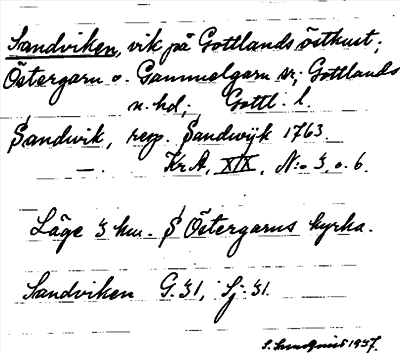 Sandviken, vik på Gottlands östkust;
Östergarn o. Gammelgarn sr; Gottlands
n. hd; Gottl. l.
Sandwik, resp. Sandwijk 1763.
—. KrA, XIX, N:o 3, o. 6.
Läge 3 km. S Östergarns kyrka.
Sandviken G. 31, Sj. 31.
S. Sundquist 1937.